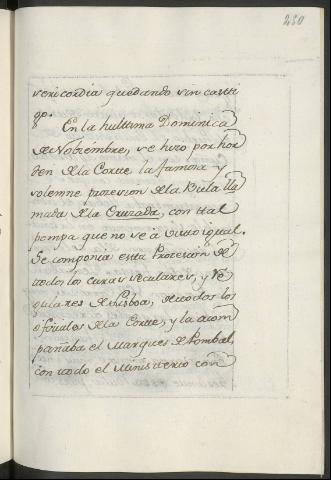 250
vericordia quedando sin castti
go.
En la hulttima Dominica
de Nobiembre, se hizo por hor
den de la Cortte la famosa y
solemne prozesion de la Bula lla
mada de la Cruzada, con ttal
pompa que no se á visto igual.
Se componia estta Prozesion de
ttodos los curas seculares, y Re
gulares de Lisboa, de ttodos los
ofiziales de la Cortte, y la acom
pañaba el Marques de Pombal,
con ttodo el Ministerio con